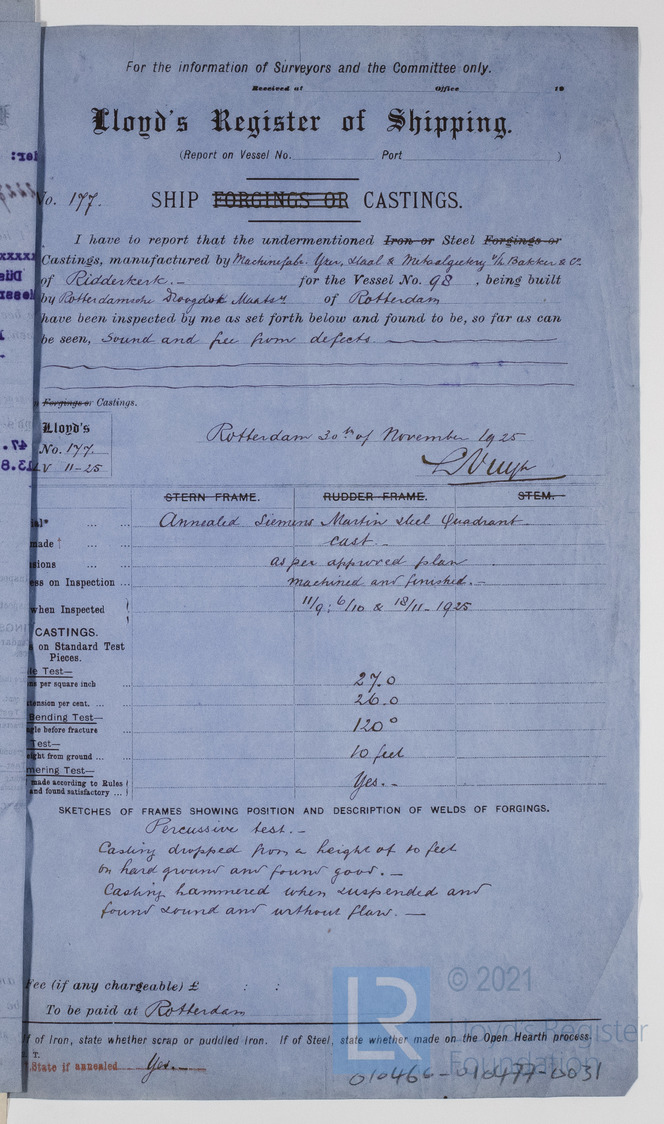 For the information of Surveyors and the Committee only.
Received at Office 19
Lloyd's Register of Shipping.
(Report on Vessel No. Port )
No. 177. SHIP FORGINGS OR CASTINGS.
I have to report that the undermentioned Iron or Steel Forgings or
Castings, manufactured by Machinefabr. Yzer, Staal & Metaalgietery v/h Bakker & Co.
of Ridderkerk. - for the Vessel No. 98, being built
by Rotterdamsche Droogdok Maats'y of Rotterdam
have been inspected by me as set forth below and found to be, so far as can
be seen, Sound and free from defects
Forgings or Castings.
Lloyd's
No. 177.
LV 11-25
Rotterdam 30th of November 1925
STERN FRAME. RUDDER FRAME. STEM.
ial* Annealed Siemens Martin steel Quadrant
made † cast. -
sions as per approved plan
ess on Inspection ... machined and finished. -
when Inspected 11/9; 6/10 & 18/11-1925
CASTINGS.
s on Standard Test
Pieces.
le Test—
ns per square inch ... 27.0
tension per cent. ... 26.0
Bending Test—
gle before fracture 120°
Test—
eight from ground ... 10 feet
mering Test—
made according to Rules
and found satisfactory ... Yes. -
SKETCHES OF FRAMES SHOWING POSITION AND DESCRIPTION OF WELDS OF FORGINGS.
Percussive test. -
Casting dropped from a height of 10 feet
on hard ground and found good. -
Casting hammered when suspended and
found sound and without flaw. —
Fee (if any chargeable) £ : :
To be paid at Rotterdam
If of Iron, state whether scrap or puddled iron. If of Steel, state whether made on the Open Hearth process.
T.
State if annealed Yes. -
LR
© 2021
Lloyd's Register
Foundation
010466-010477-0031